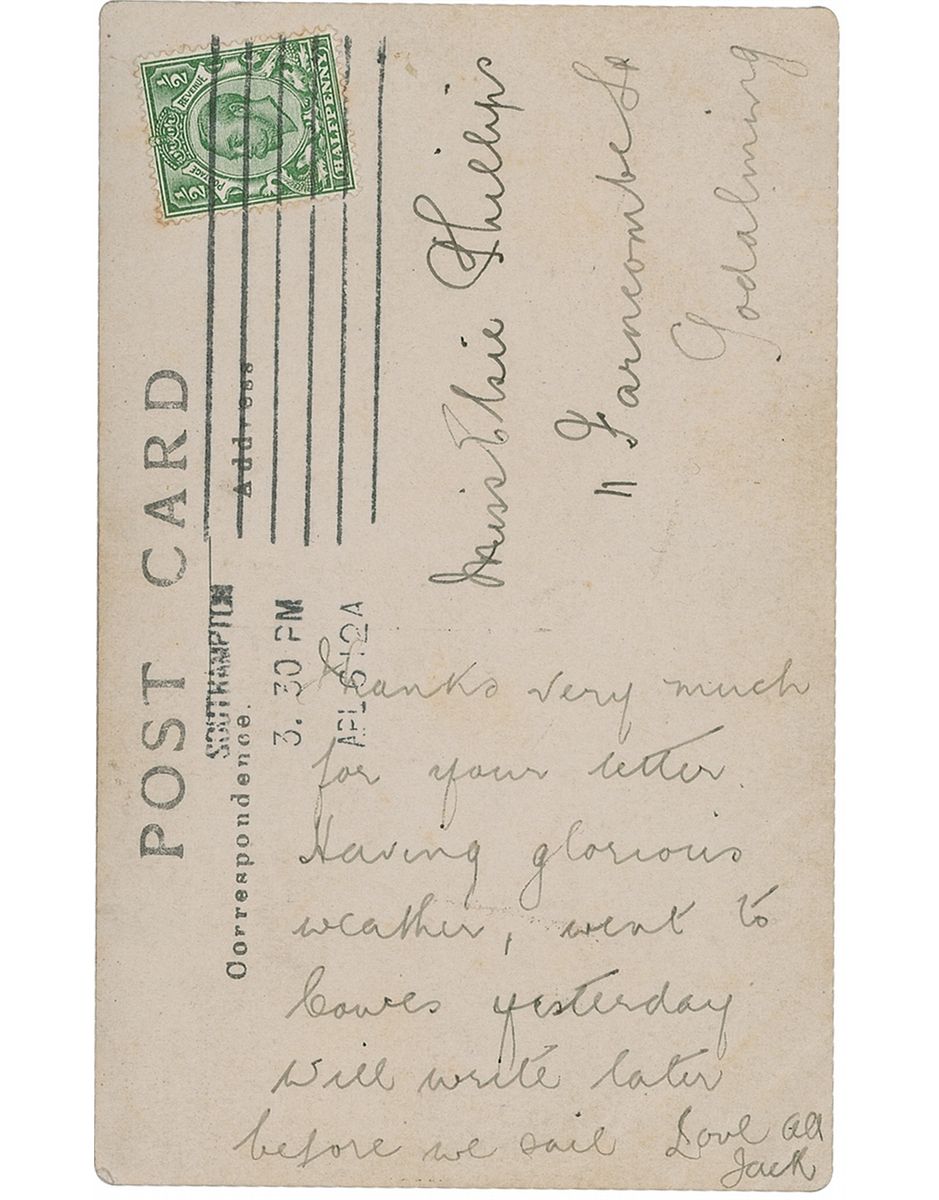 POST CARD
Correspondence.
Address
HALFPENNY
POSTAGE
REVENUE
½
½
SOUTHAMPTON
3. 30 PM
APL 6 12A
Miss Elsie Phillips
11 Farncombe St
Godalming
Thanks very much
for your letter
Having glorious
weather, went to
Cowes yesterday
Will write later
before we sail Love all
Jack